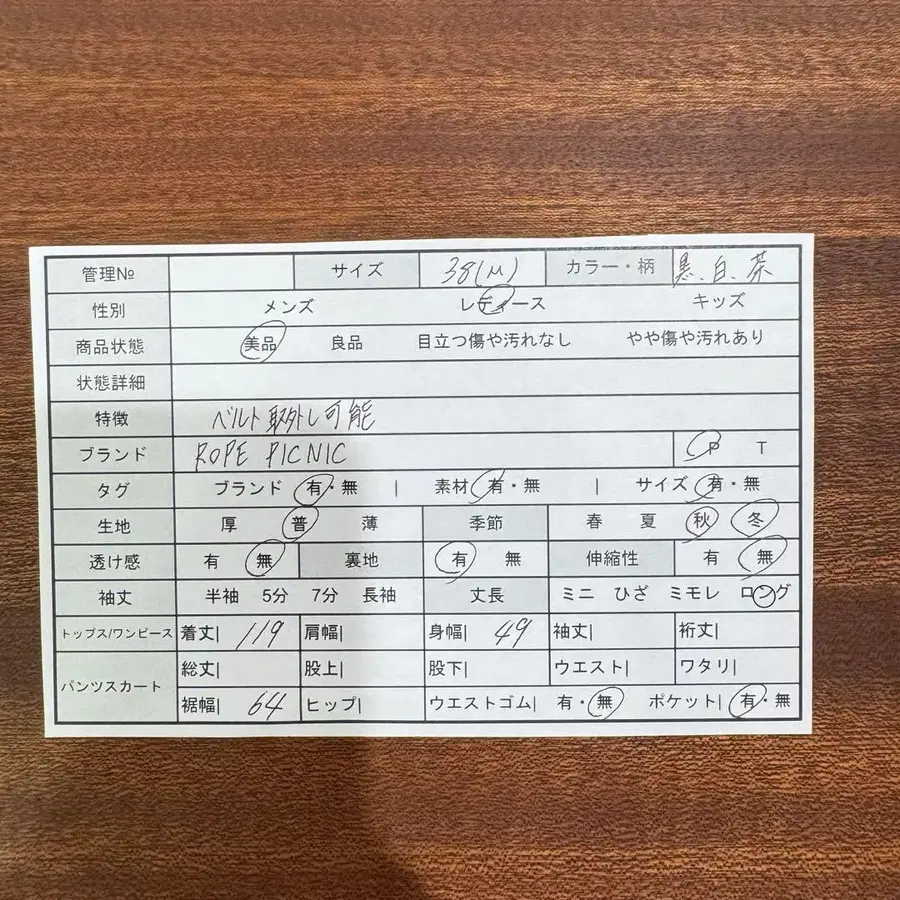 管理№ サイズ 38(M) カラー・柄 黒、白、茶
性別 メンズ レディース キッズ
商品状態 美品 良品 目立つ傷や汚れなし やや傷や汚れあり
状態詳細
特徴 ベルト取外し可能
ブランド ROPE PICNIC P T
タグ ブランド 有・無 | 素材 有・無 | サイズ 有・無
生地 厚 普 薄 季節 春 夏 秋 冬
透け感 有 無 裏地 有 無 伸縮性 有 無
袖丈 半袖 5分 7分 長袖 丈長 ミニ ひざ ミモレ ロング
トップス/ワンピース 着丈| 119 肩幅| 身幅| 49 袖丈| 裄丈|
パンツスカート 総丈| 股上| 股下| ウエスト| ワタリ|
裾幅| 64 ヒップ| ウエストゴム| 有・無 ポケット| 有・無